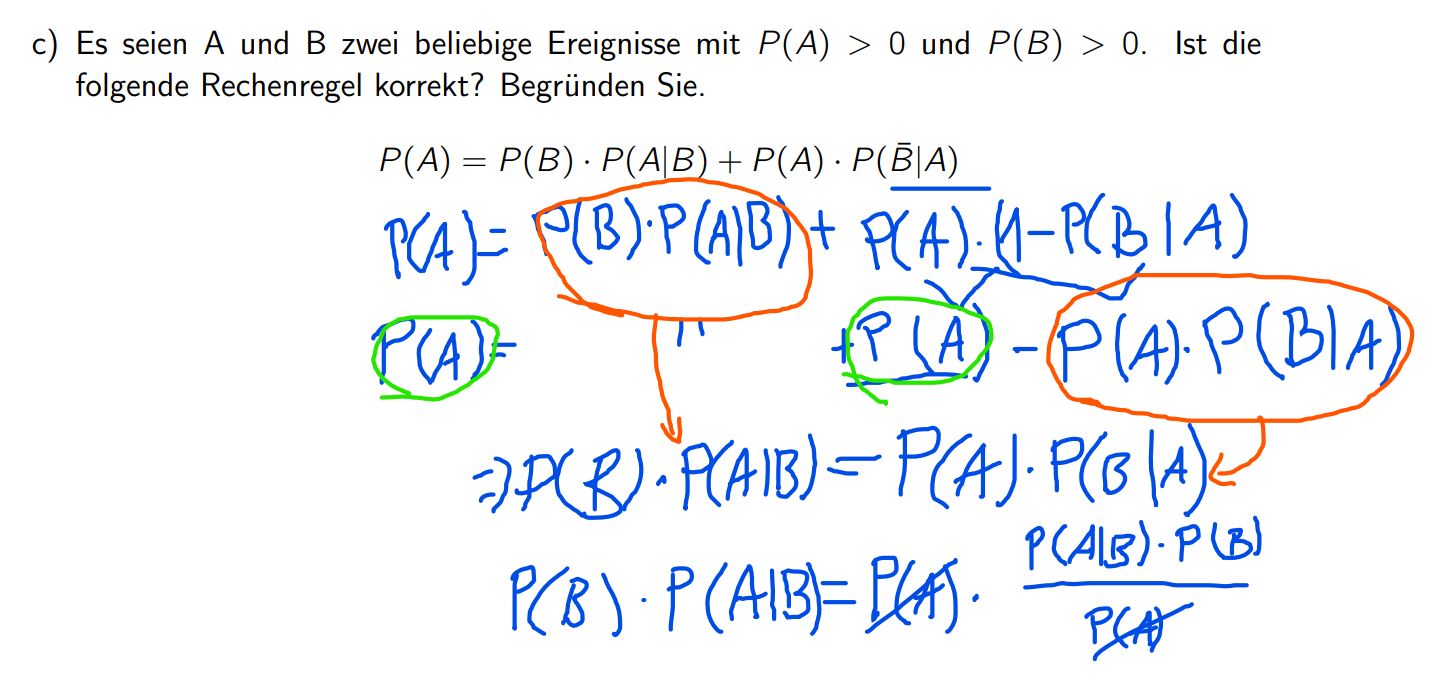 c) Es seien A und B zwei beliebige Ereignisse mit P(A) > 0 und P(B) > 0. Ist die
folgende Rechenregel korrekt? Begründen Sie.
P(A) = P(B) · P(A|B) + P(A) · P(B̄|A)
P(A)= P(B)·P(A|B)+ P(A)·(1-P(B|A)
P(A)= " +P(A) - P(A)·P(B|A)
=>P(B)·P(A|B)=P(A)·P(B|A)
P(A|B)·P(B)
P(B)·P(A|B)=P(A)·
P(A)